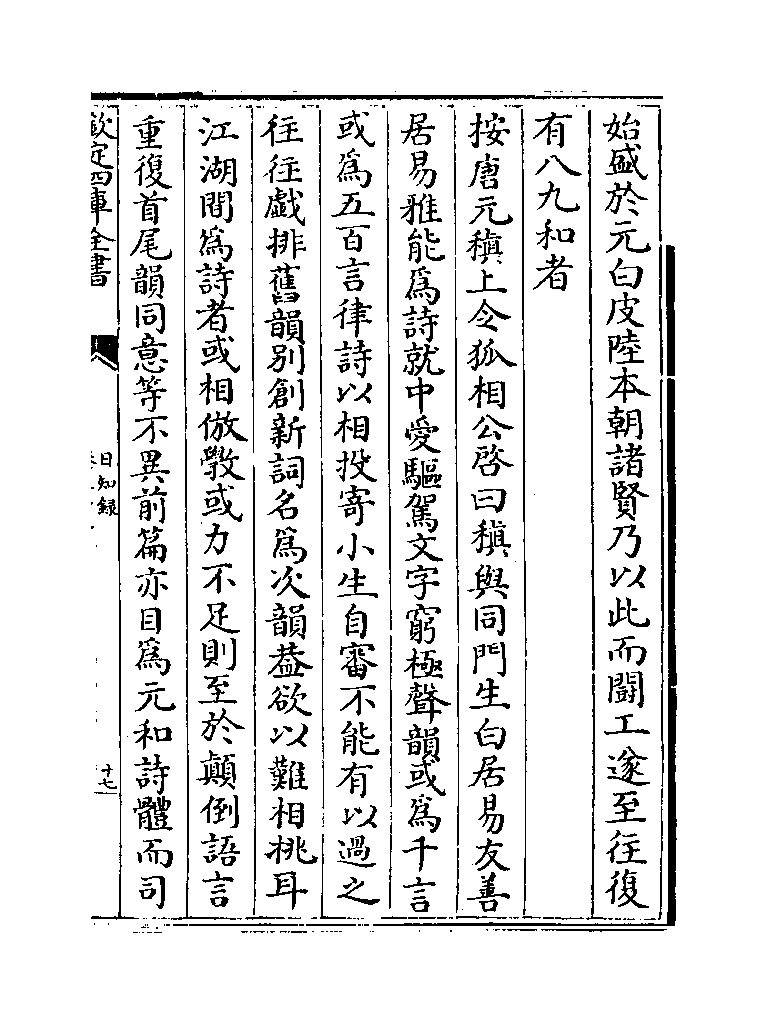 始盛於元白皮陸本朝諸賢乃以此而鬭工遂至往復
有八九和者
按唐元稹上令狐相公啓曰稹與同門生白居易友善
居易雅能為詩就中愛驅駕文字窮極聲韻或為千言
或為五百言律詩以相投寄小生自審不能有以過之
往往戲排舊韻別創新詞名為次韻葢欲以難相挑耳
江湖間為詩者或相倣斆或力不足則至於顛倒語言
重復首尾韻同意等不異前篇亦目為元和詩體而司
欽定四庫全書
日知録
十七